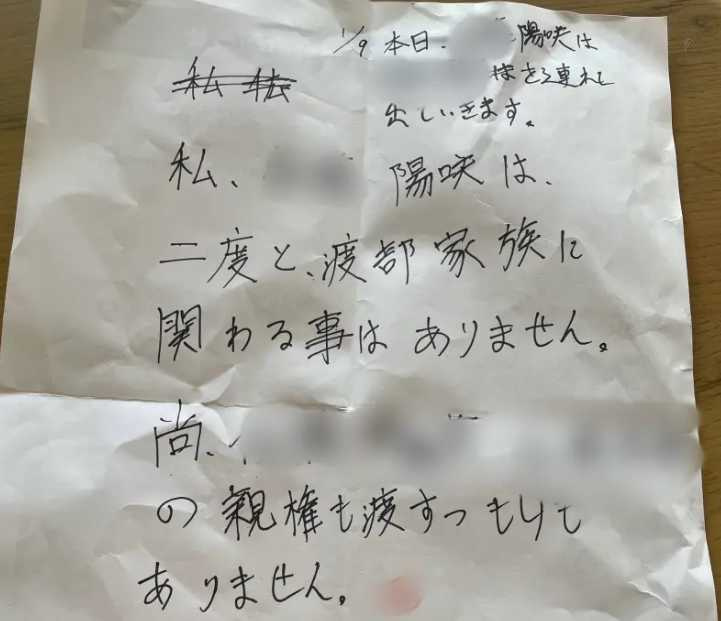 1/9 本日 陽咲は
連れて
出しいきます。
私 私
私、 陽咲は、
二度と、渡部家族に
関わる事はありません。
尚、
の親権も渡すつもりも
ありません。